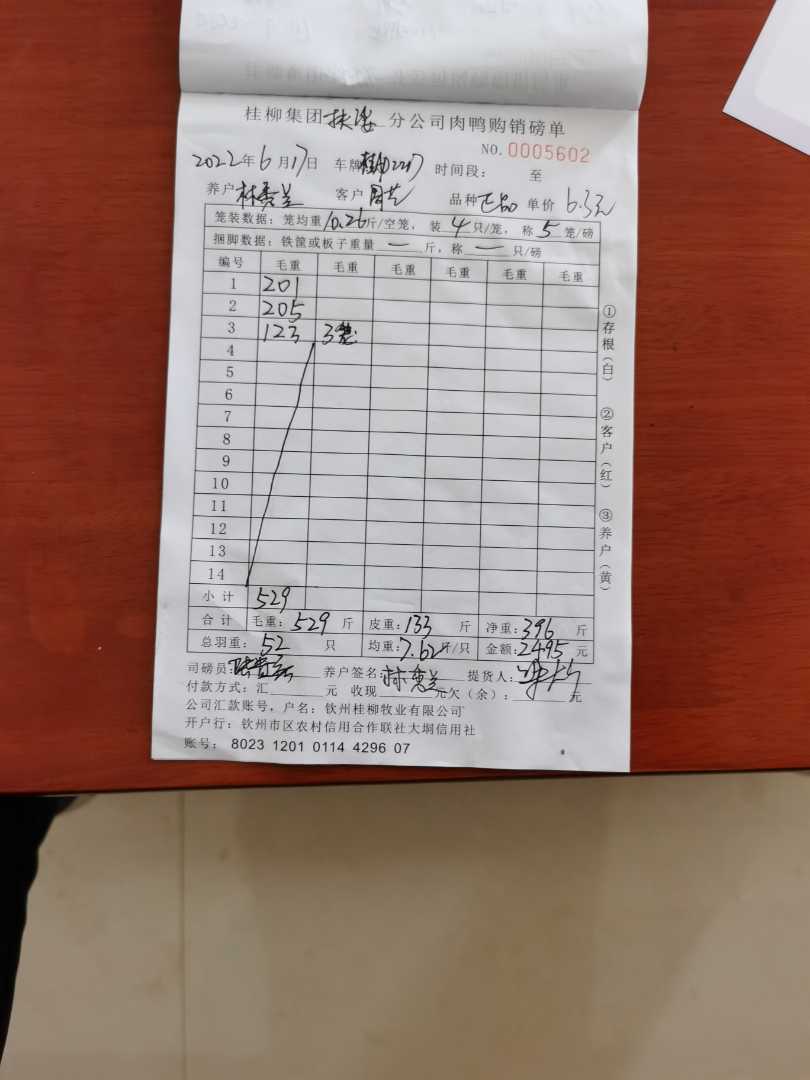 桂柳集团扶绥分公司肉鸭购销磅单
NO.0005602
2022年6月17日 车牌 2217 时间段: 至
养户林秀兰 客户周芝 品种正品 单价6.3元
笼装数据:笼均重10.26斤/空笼,装4只/笼,称5笼/磅
捆脚数据:铁筐或板子重量一斤,称一只/磅
编号 毛重 毛重 毛重 毛重 毛重 毛重
1 201
2 205
3 123 3笼
4
5
6
7
8
9
10
11
12
13
14
小计 529
合计 毛重:529斤 皮重:133斤 净重:396斤
总羽重:52只 均重:7.62斤/只 金额:2495元
司磅员: 养户签名:林秀兰 提货人:
付款方式:汇 元 收现 元欠(余): 元
公司汇款账号,户名:钦州桂柳牧业有限公司
开户行:钦州市区农村信用合作联社大垌信用社
账号:8023 1201 0114 4296 07
①存根(白)
②客户(红)
③养户(黄)